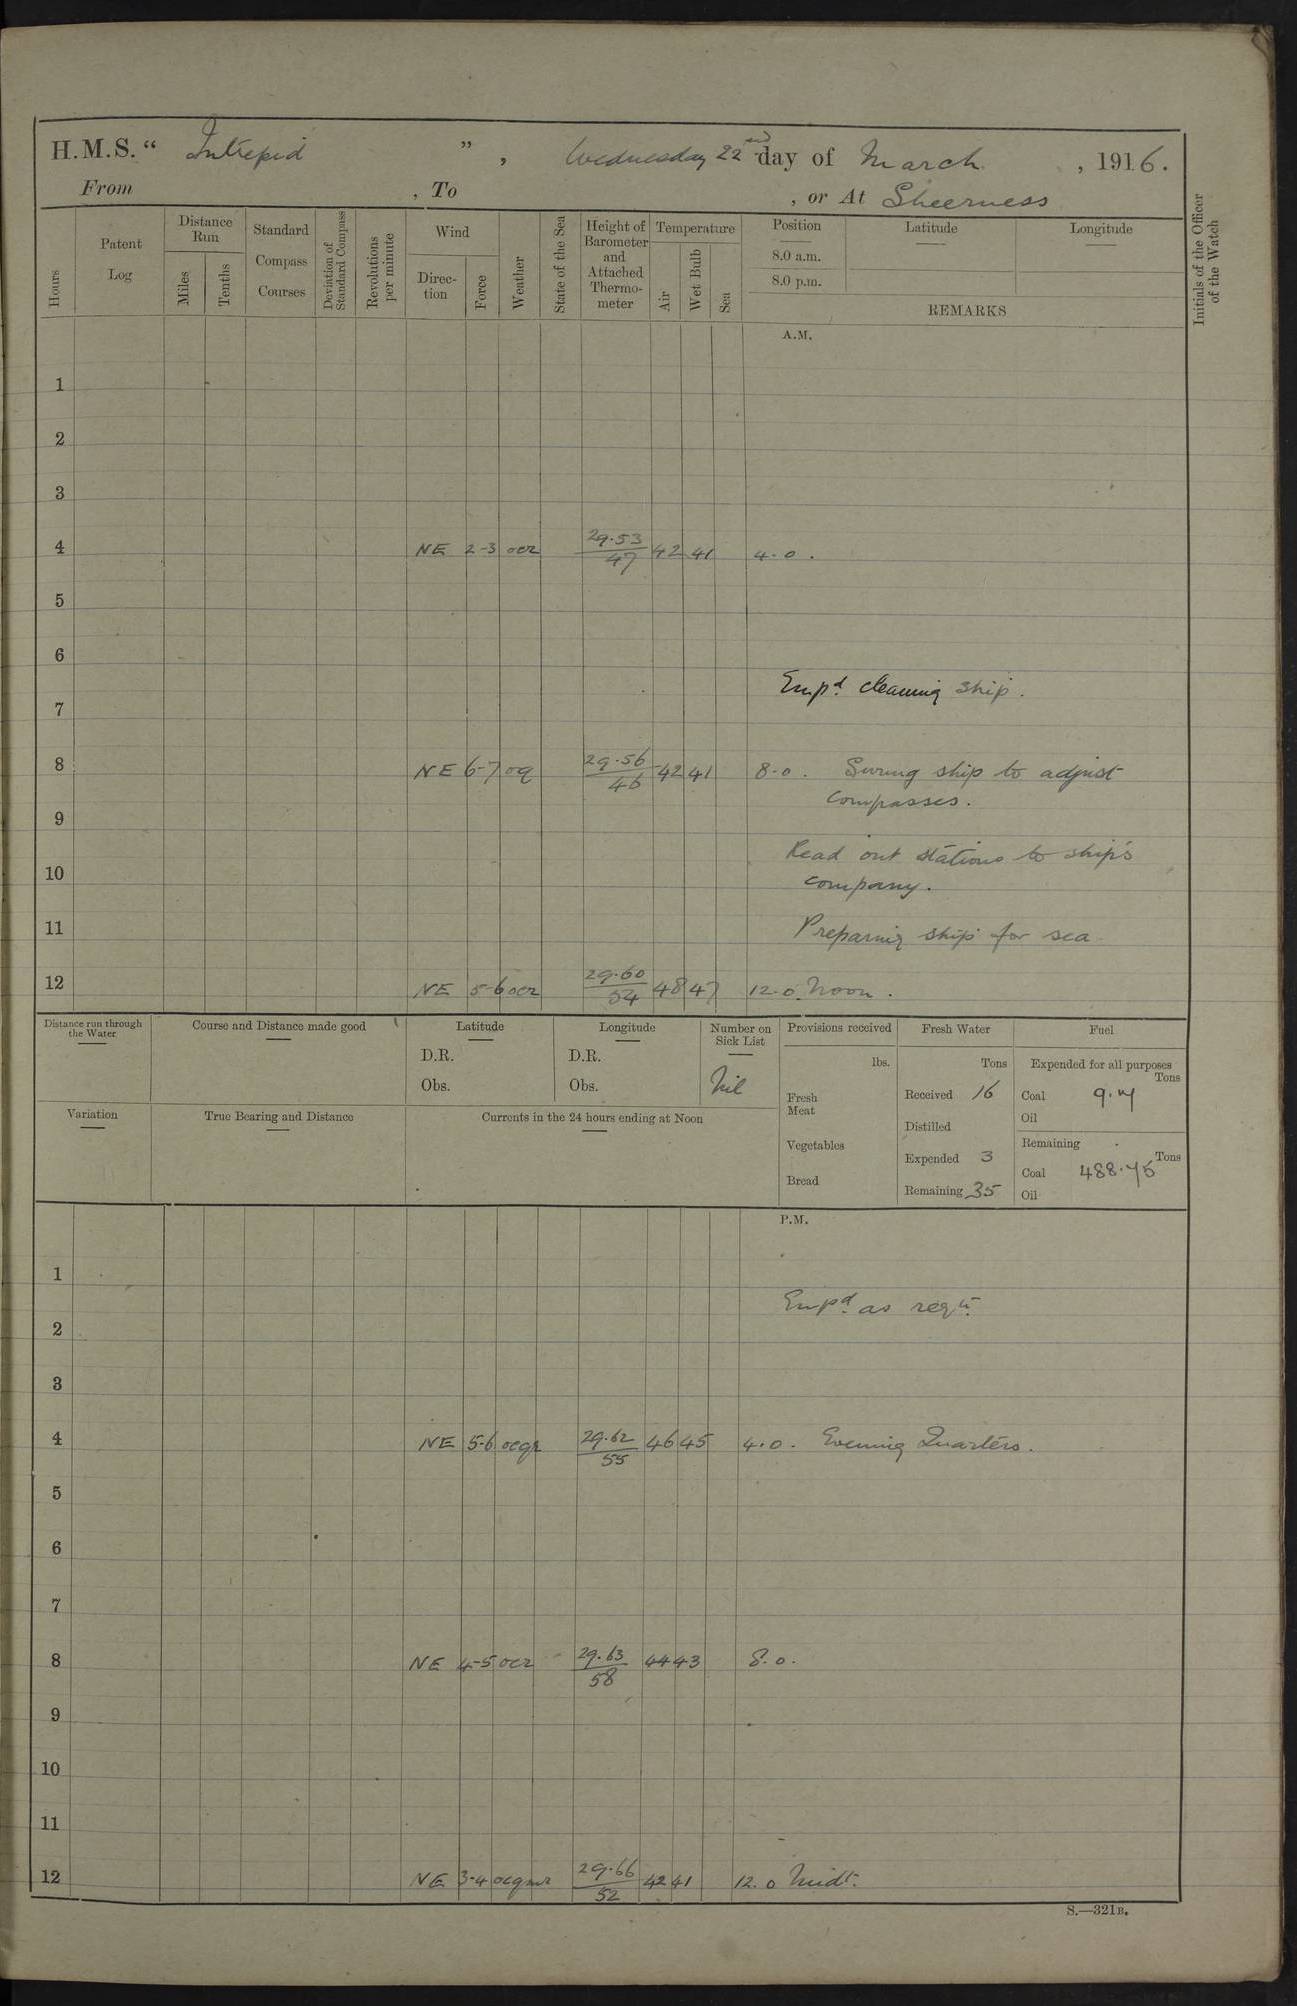 H.M.S. “ Intrepid ” , Wednesday 22nd day of March , 1916.
From , To , or At Sheerness
Hours
Patent Log
Distance Run
Miles
Tenths
Standard Compass Courses
Deviation of Standard Compass
Revolutions per minute
Wind
Direction
Force
Weather
State of the Sea
Height of Barometer and Attached Thermometer
Temperature
Air
Wet Bulb
Sea
Position
8.0 a.m.
8.0 p.m.
Latitude
Longitude
REMARKS
Initials of the Officer of the Watch
A.M.
1
2
3
4 NE 2-3 ocr 29.53/47 42 41 4.0.
5
6
Empd. cleaning ship.
7
8 NE 6-7 oq 29.56/46 42 41 8.0. Swung ship to adjust
compasses.
9
Read out stations to ship's
10 company.
11 Preparing ship for sea
12 NE 5-6 ocr 29.60/54 48 47 12.0. Noon.
Distance run through the Water
Course and Distance made good
Latitude
D.R.
Obs.
Longitude
D.R.
Obs.
Number on Sick List
Nil
Provisions received
lbs.
Fresh Meat
Vegetables
Bread
Fresh Water
Tons
Received 16
Distilled
Expended 3
Remaining 35
Fuel
Expended for all purposes
Tons
Coal 9.7
Oil
Remaining
Tons
Coal 488.75
Oil
Variation
True Bearing and Distance
Currents in the 24 hours ending at Noon
P.M.
1
Empd. as reqr.
2
3
4 NE 5-6 ocqr 29.62/55 46 45 4.0. Evening Quarters.
5
6
7
8 NE 4-5 ocr 29.63/58 44 43 8.0.
9
10
11
12 NE 3-4 ocqmr 29.66/52 42 41 12.0 Midt.
S.—321B.